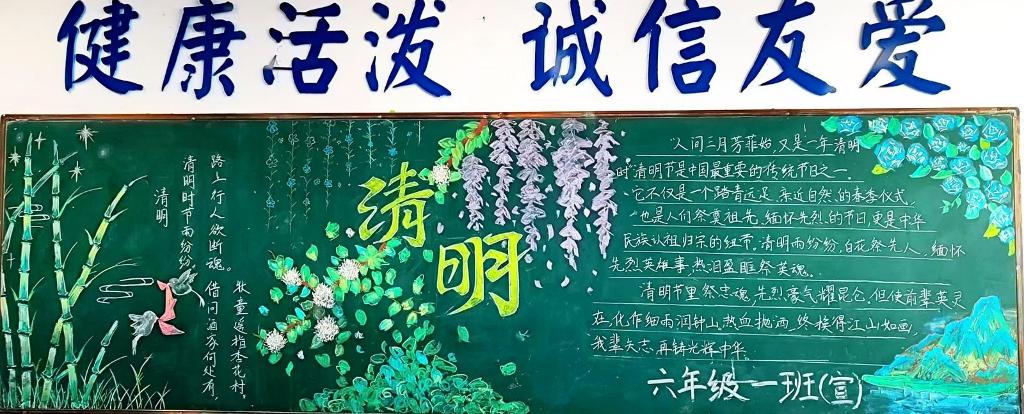 健康活泼 诚信友爱
清明
清明时节雨纷纷
路上行人欲断魂。
借问酒家何处有,
牧童遥指杏花村。
清明
人间三月芳菲始,又是一年清明
时清明节是中国最重要的传统节日之一.
它不仅是一个踏青远足,亲近自然的春季仪式,
也是人们祭奠祖先,缅怀先烈的节日,更是中华
民族认祖归宗的纽带,清明雨纷纷,白花祭先人,缅怀
先烈英雄事,热泪盈眶祭英魂.
清明节里祭忠魂,先烈豪气耀昆仑,但使前辈英灵
在,化作细雨润钟山,热血抛洒,终换得江山如画,
我辈矢志,再铸光辉中华.
六年级一班(宣)